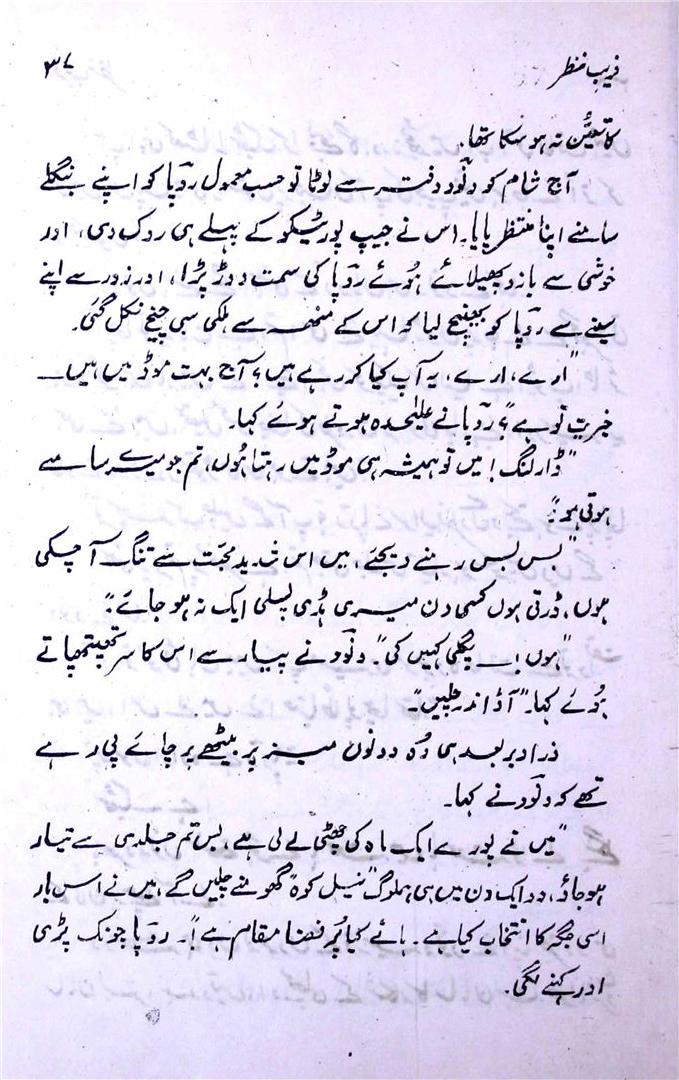 فریب منظر ۳۷
کا تعیّن نہ ہو سکا تھا۔
آج شام کو ونَود دفتر سے لوٹا تو حسب معمول روَپا کو اپنے بنگلے
سامنے اپنا منتظر پایا۔ اس نے جیپ پورٹیکو کے پہلے ہی روک دی، اور
خوشی سے بازو پھیلائے ہُوئے روَپا کی سمت دوڑ پڑا، اور زور سے اپنے
سینے سے روَپا کو بھینچ لیا کہ اس کے منھ سے ہلکی سی چیخ نکل گئی۔
"ارے، ارے، یہ آپ کیا کر رہے ہیں؟ آج بہت موڈ میں ہیں۔
خیریت تو ہے"؟ روَپا نے علیٰحدہ ہوتے ہوئے کہا۔
"ڈارلنگ! میں تو ہمیشہ ہی موڈ میں رہتا ہُوں، تم جو میرے سامنے
ہوتی ہو"۔
"بس بس رہنے دیجئے، میں اس شدید محبّت سے تنگ آ چکی
ہوں، ڈرتی ہوں کسی دن میری ہڈی پسلی ایک نہ ہو جائے"۔
"ہوں!۔ پگلی کہیں کی"۔ ونَود نے پیار سے اس کا سر تھپتھپاتے
ہُوئے کہا۔ "آؤ اندر چلیں"۔
ذرا دیر بعد ہی وُہ دونوں میز پر بیٹھے ہر چائے پی رہے
تھے کہ ونَود نے کہا۔
"میں نے پورے ایک ماہ کی چھٹی لے لی ہے، بس تم جلدی سے تیار
ہو جاؤ، دو ایک دن میں ہی ہملوگ "نیل کوہ" گھومنے چلیں گے، میں نے اس بار
اسی جگہ کا انتخاب کیا ہے۔ ہائے کیا پُر فضا مقام ہے"!۔ روَپا چونک پڑی
اور کہنے لگی۔